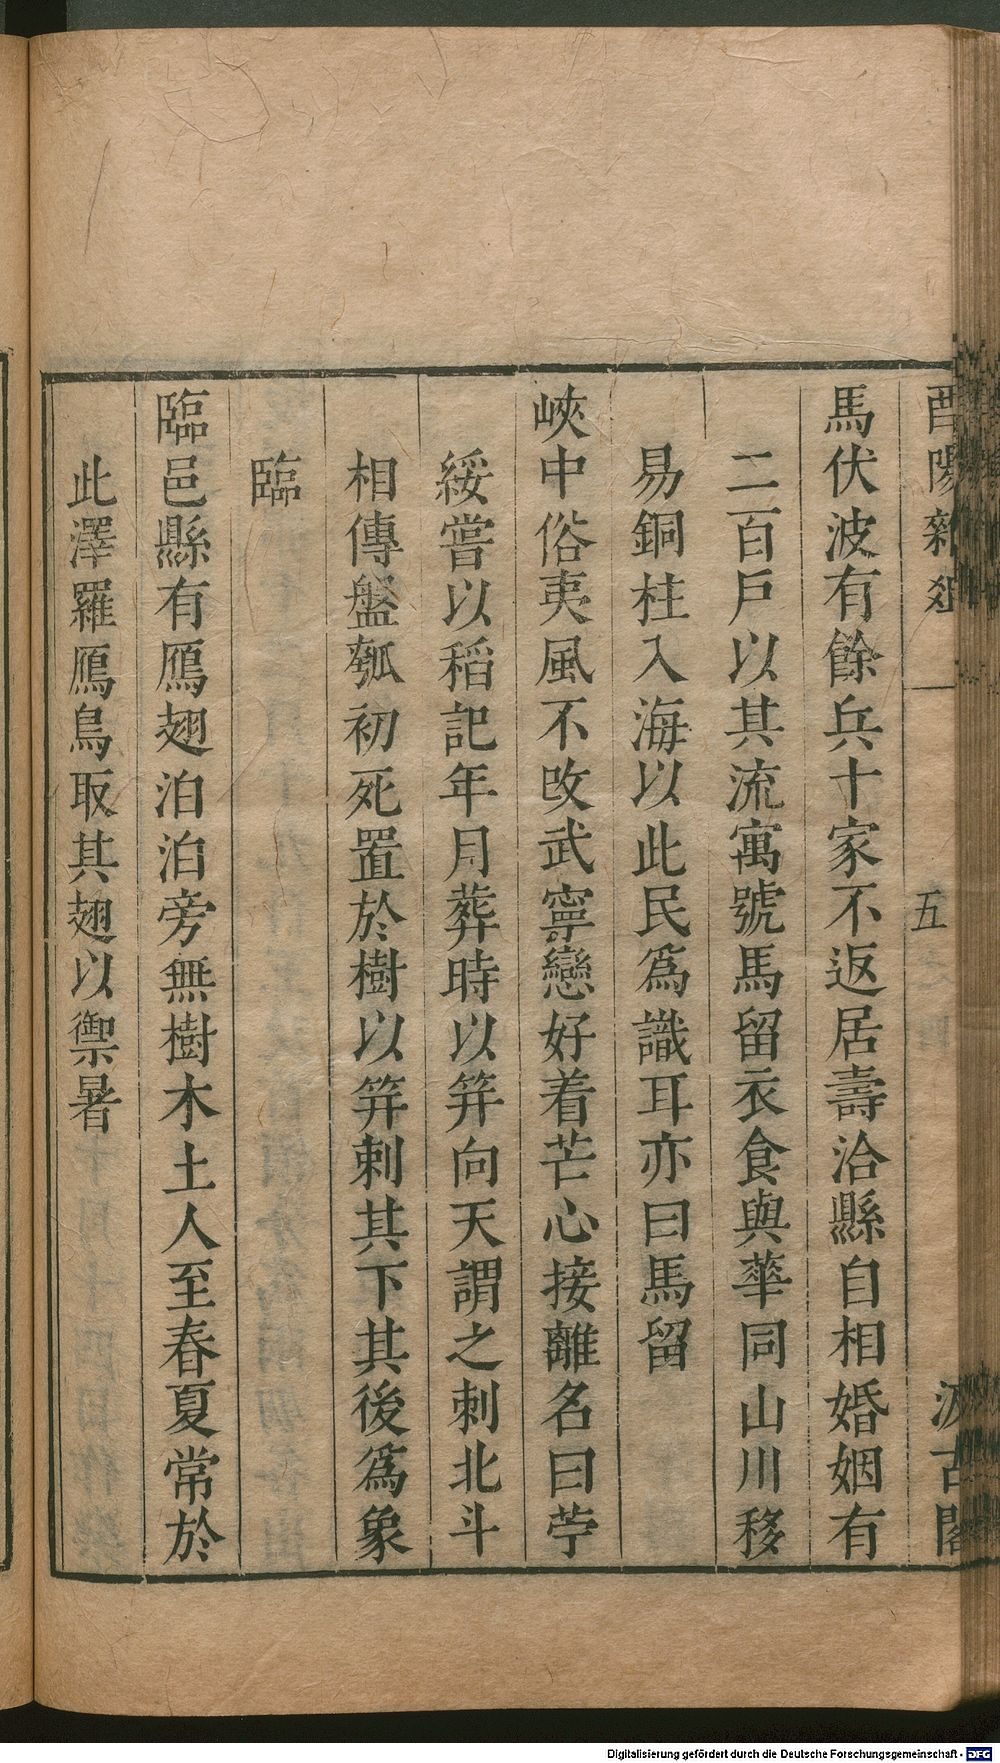 酉陽雜俎
五
汲古閣
馬伏波有餘兵十家不返居壽洽縣自相婚姻有
二百戶以其流寓號馬留衣食與華同山川移
易銅柱入海以此民爲識耳亦曰馬留
峽中俗夷風不改武寧蠻好着芒心接離名曰苧
綏嘗以稻記年月葬時以筓向天謂之刺北斗
相傳盤瓠初死置於樹以筓刺其下其後爲象
臨
臨邑縣有鴈翅泊泊旁無樹木土人至春夏常於
此澤羅鴈鳥取其翅以禦暑
Digitalisierung gefördert durch die Deutsche Forschungsgemeinschaft - DFG